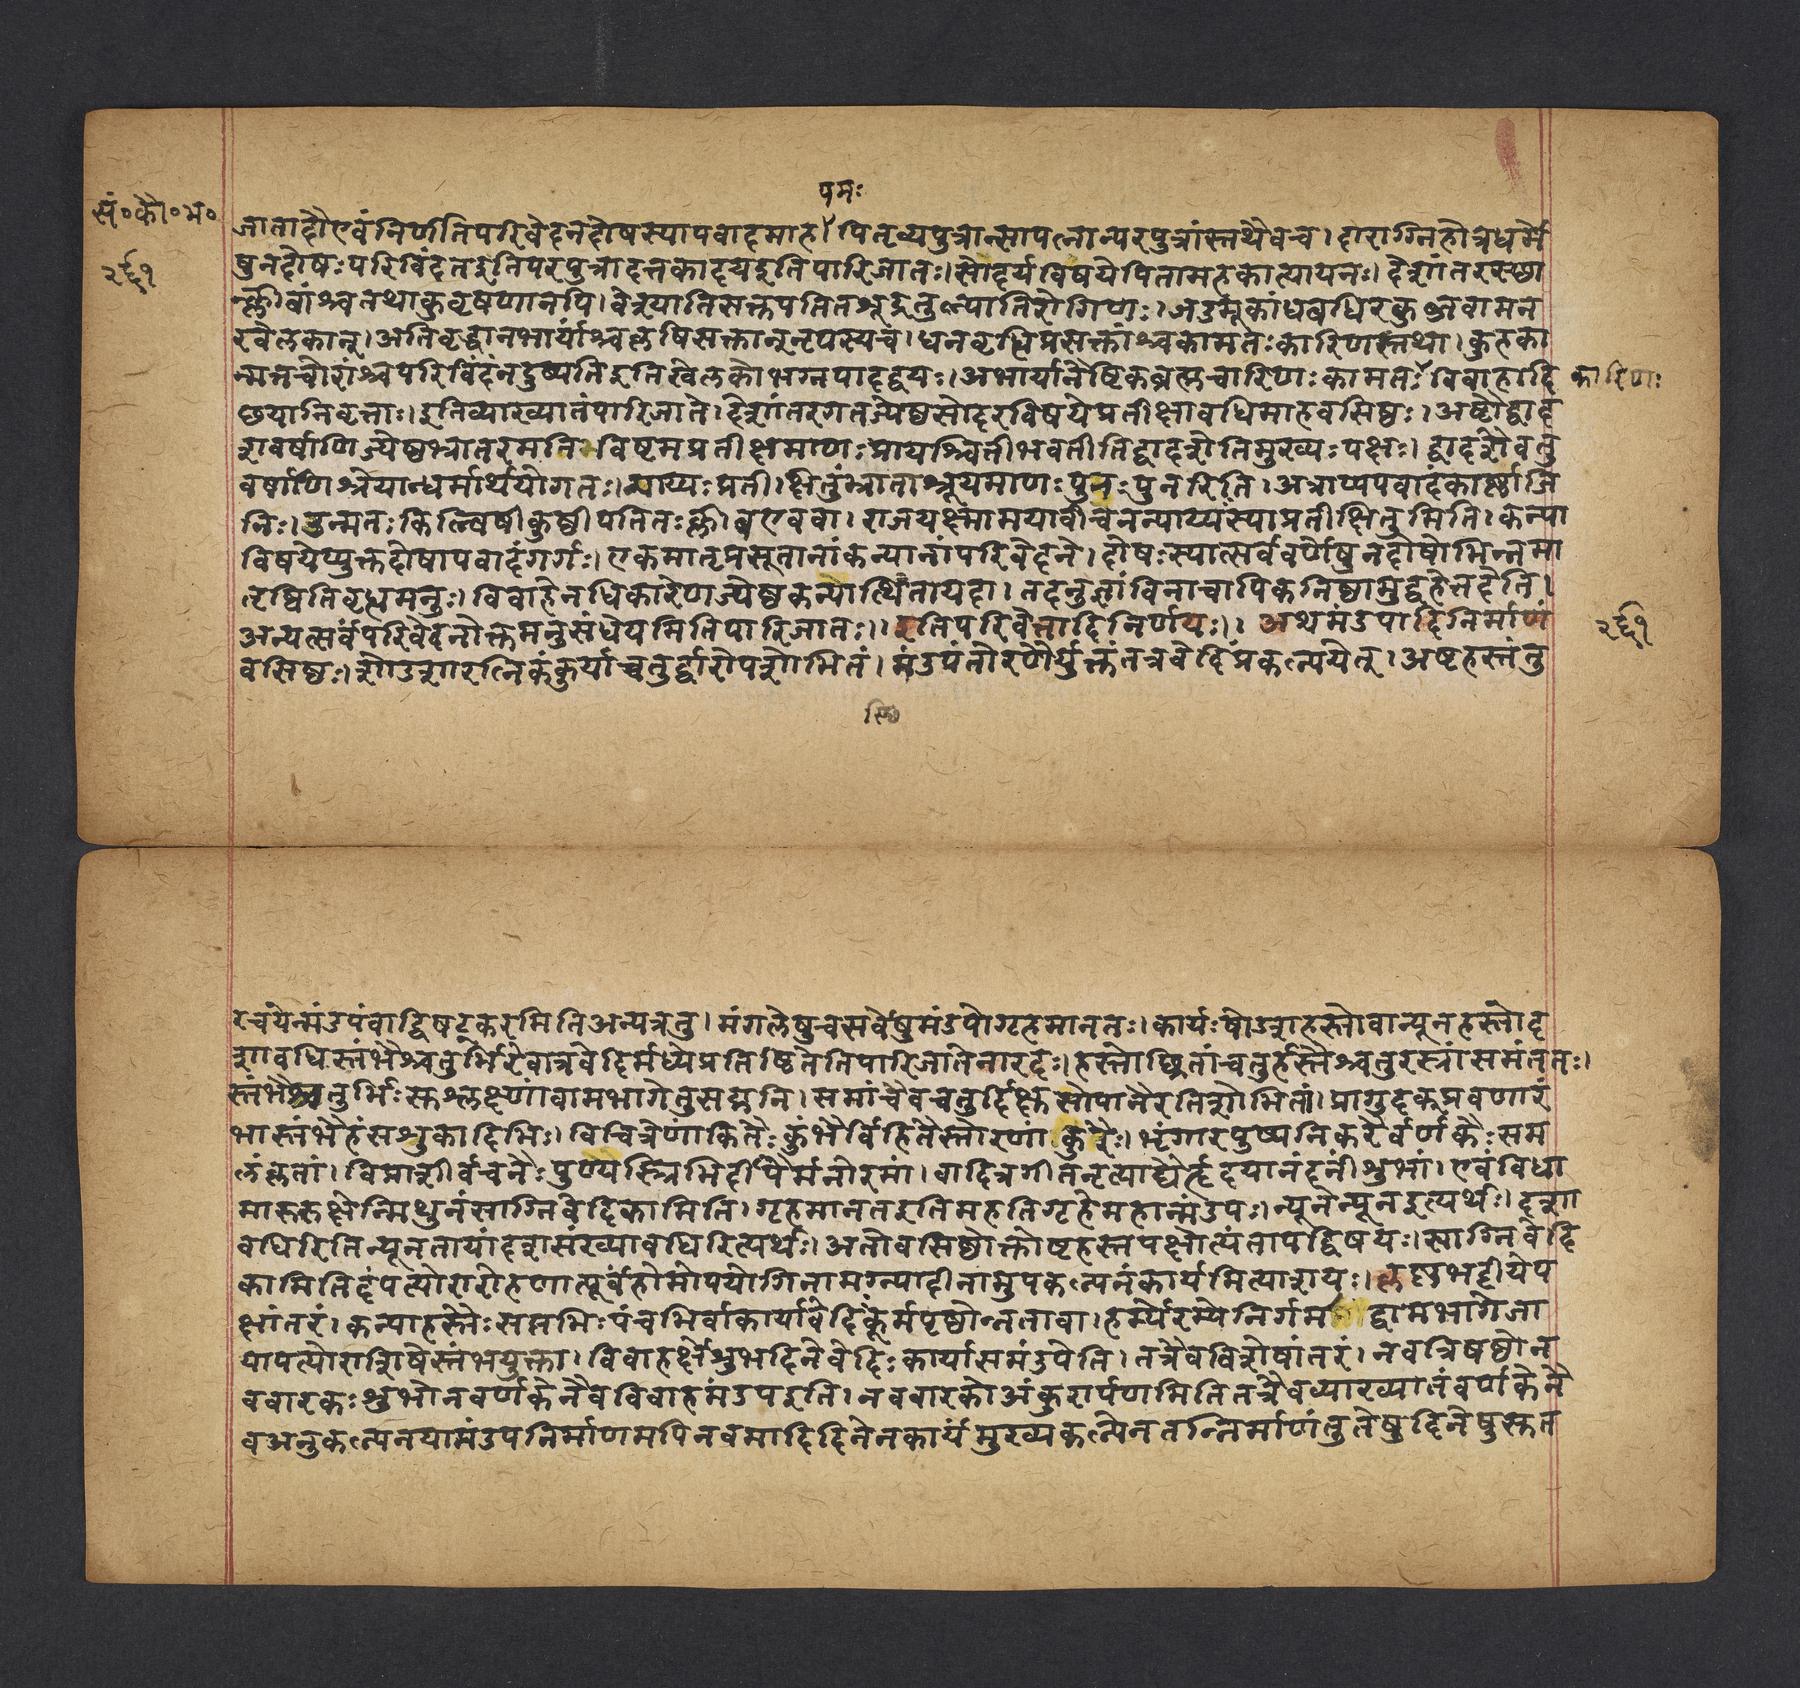 यमः
सं॰कौ॰भ॰
२६१
जातादौएवंनिर्णीतिपरिवेदनदोषस्यापवादमाह। पितृव्यपुत्रान्सापत्नान्परपुत्रांस्तथैवच। दाराग्निहोत्रधर्मे
षुनदोषःपरिविंदतइतिपरपुत्रादत्तकादयइतिपारिजातः। सोदर्यविषयेपितामहकात्यायनः। देशांतरस्था
न्क्लीबांश्चतथाकुवृषणानपि। वेश्यातिसक्तपतितशूद्रतुल्यातिरोगिणः। जडमूकांधबधिरकुब्जवामन
खेलकान्। अतिवृद्धानभार्यांश्चकृषिसक्तान्नृपस्यच। धनवृद्धिप्रसक्तांश्चकामतःकारिणस्तथा। कुहका
न्मत्तचोरांश्चपरिविंदंनदुष्यतिइतिखेलकोभग्नपादद्वयः। अभार्यानैष्टिकब्रह्मचारिणःकामतः विवाहादि
कारिणः
छयानिवृत्ताः। इतिव्याख्यातंपारिजाते। देशांतरगतज्येष्ठसोदरविषयेप्रतीक्षावधिमाहवसिष्ठः। अष्टौद्वाद
शवर्षाणिज्येष्ठभ्रातरमनिविष्टमप्रतीक्षमाणःप्रायश्चित्तीभवतीतिद्वादशेतिमुख्यःपक्षः। द्वादशैवतु
वर्षाणिश्रेयान्धर्मार्थयोगतः। न्याय्यःप्रती।क्षितुंभ्राताश्रूयमाणःपुनःपुनरिति। अत्राप्यपवादंकार्ष्णाजि
निः। उन्मतःकिल्बिषीकुष्ठीपतितःक्लीबएववा। राजयक्ष्मामयावीचनन्याय्यंस्याप्रतीक्षितुमिति। कन्या
विषयेप्युक्तदोषापवादंगर्गः। एकमातृप्रसूतानांकन्यानांपरिवेदने। दोषःस्यात्सर्ववर्णेषुनदोषोभिन्नमा
तृष्वितिवृद्धमनुः। विवाहेनधिकारेणज्येष्ठकन्यास्थितायदा। तदनुज्ञांविनाचापिकनिष्ठामुद्वहेत्तदेति।
अन्यत्सर्वंपरिवेदनोक्तमनुसंधेयमितिपारिजातः।। इतिपरिवेत्तादिनिर्णयः।। अथमंडपादिनिर्माणं
२६१
वसिष्ठः। षोडशारत्निकंकुर्याच्चतुर्द्वारोपशोभितं। मंडपंतोरणैर्युक्तंतत्रवेदिंप्रकल्पयेत्। अष्टहस्तंतु
रचयेन्मंडपंवाद्विषट्करमितिअन्यत्रतु। मंगलेषुचसर्वेषुमंडपोगृहमानतः। कार्यःषोडशहस्तोवान्यूनहस्तोद
शावधिस्तंभैश्चतुर्भिरेवात्रवेदिर्मध्येप्रतिष्ठितेतिपारिजातेनारदः। हस्तोछ्रितांचतुर्हस्तैश्चतुरस्त्रांसमंततः।
स्तंभैश्चतुर्भिःसुश्लक्ष्णांवामभागेतुसद्मनि। समांचैवचतुर्दिक्षुसोपानैरतिशोभितां। प्रागुदक्प्रवणारं
भास्तंभैहंसशुकादिभिः। विचित्रेणांकितैःकुंभैर्विहितैस्तोरणांकुरैः। भृंगारपुष्पनिकरैर्वर्णकैःसम
लंकृतां। विप्राशीर्वचनैःपुण्यस्त्रिभिर्दीपैर्मनोरमां। वादित्रगीतनृत्याद्यैर्हृदयानंदनींशुभां। एवंविधा
मारुरुक्षेन्मिथुनंसाग्निवेदिकामिति। गृहमानतइतिमहतिगृहेमहान्मंडपः। न्यूनेन्यूनइत्यर्थः। दशा
वधिरितिन्यूनतायांदशसंख्यावधिरित्यर्थः। अतोवसिष्ठोक्तोष्टहस्तपक्षोत्यंतापद्विषयः। साग्निवेदि
कामितिदंपत्योरारोहणात्पूर्वंहोमोपयोगिनामग्न्यादीनामुपकल्पनंकार्यमित्याशयः। कृष्णभट्टीयेप
क्षांतरं। कन्याहस्तैःसप्तभिःपंचभिर्वाकार्यावेदिःकूर्मपृष्ठोन्नतावा। हर्म्येरम्येनिर्गमाद्वामभागेजा
यापत्योराशिषेस्तंभयुक्ता। विवाहर्क्षेशुभदिनेवेदिःकार्यासमंडपेति। तत्रैवविशेषांतरं। नवत्रिषष्ठेन
ववारकःशुभोनवर्णकेनैवविवाहमंडपइति। नववारकोअंकुरार्पणमितितत्रैवव्याख्यातंवर्णकेनै
वअनुकल्पेनयामंडपनिर्माणमपिनवमादिदिनेनकार्यंमुख्यकल्पेनतन्निर्माणंतुतेषुदिनेषुसुत